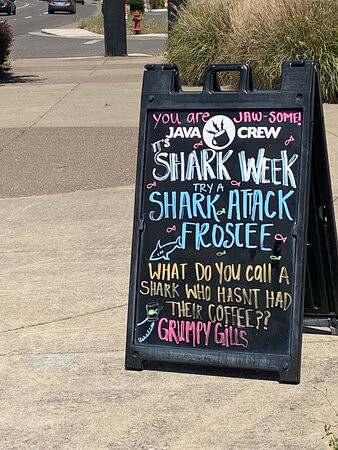 you are JAW-SOME!
JAVA CREW
IT'S
SHARK WEEK
TRY A
SHARK ATTACK
FROSCEE
WHAT DO YOU CALL A
SHARK WHO HASNT HAD
THEIR COFFEE??
GRUMPY GILLS